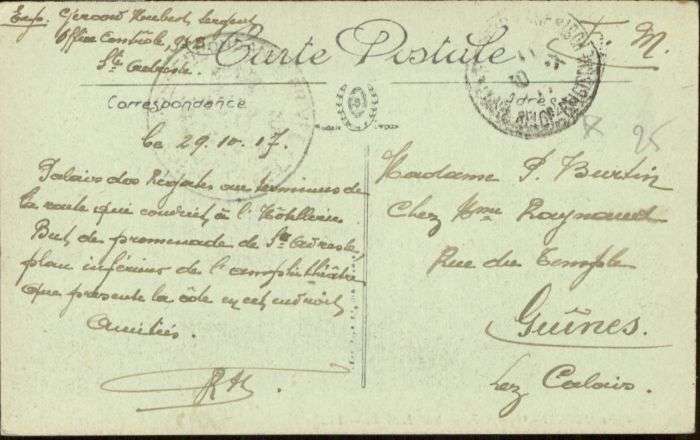 Exp: Gérard Hubert, sergent
Office Contrôle,
Ste Adresse.
Carte Postale
F. M.
Correspondance
Le 29.10.17.
25
Palais des Régates au terminus de
la route qui conduit à l'Hôtellerie.
But de promenade de Ste Adresse,
plan inférieur de l'amphithéâtre
que présente la côte en cet endroit
Amitiés.
RH
Madame P. Burtin
Chez Mme Raynaud
Rue du Temple
Guînes.
Lez Calais.